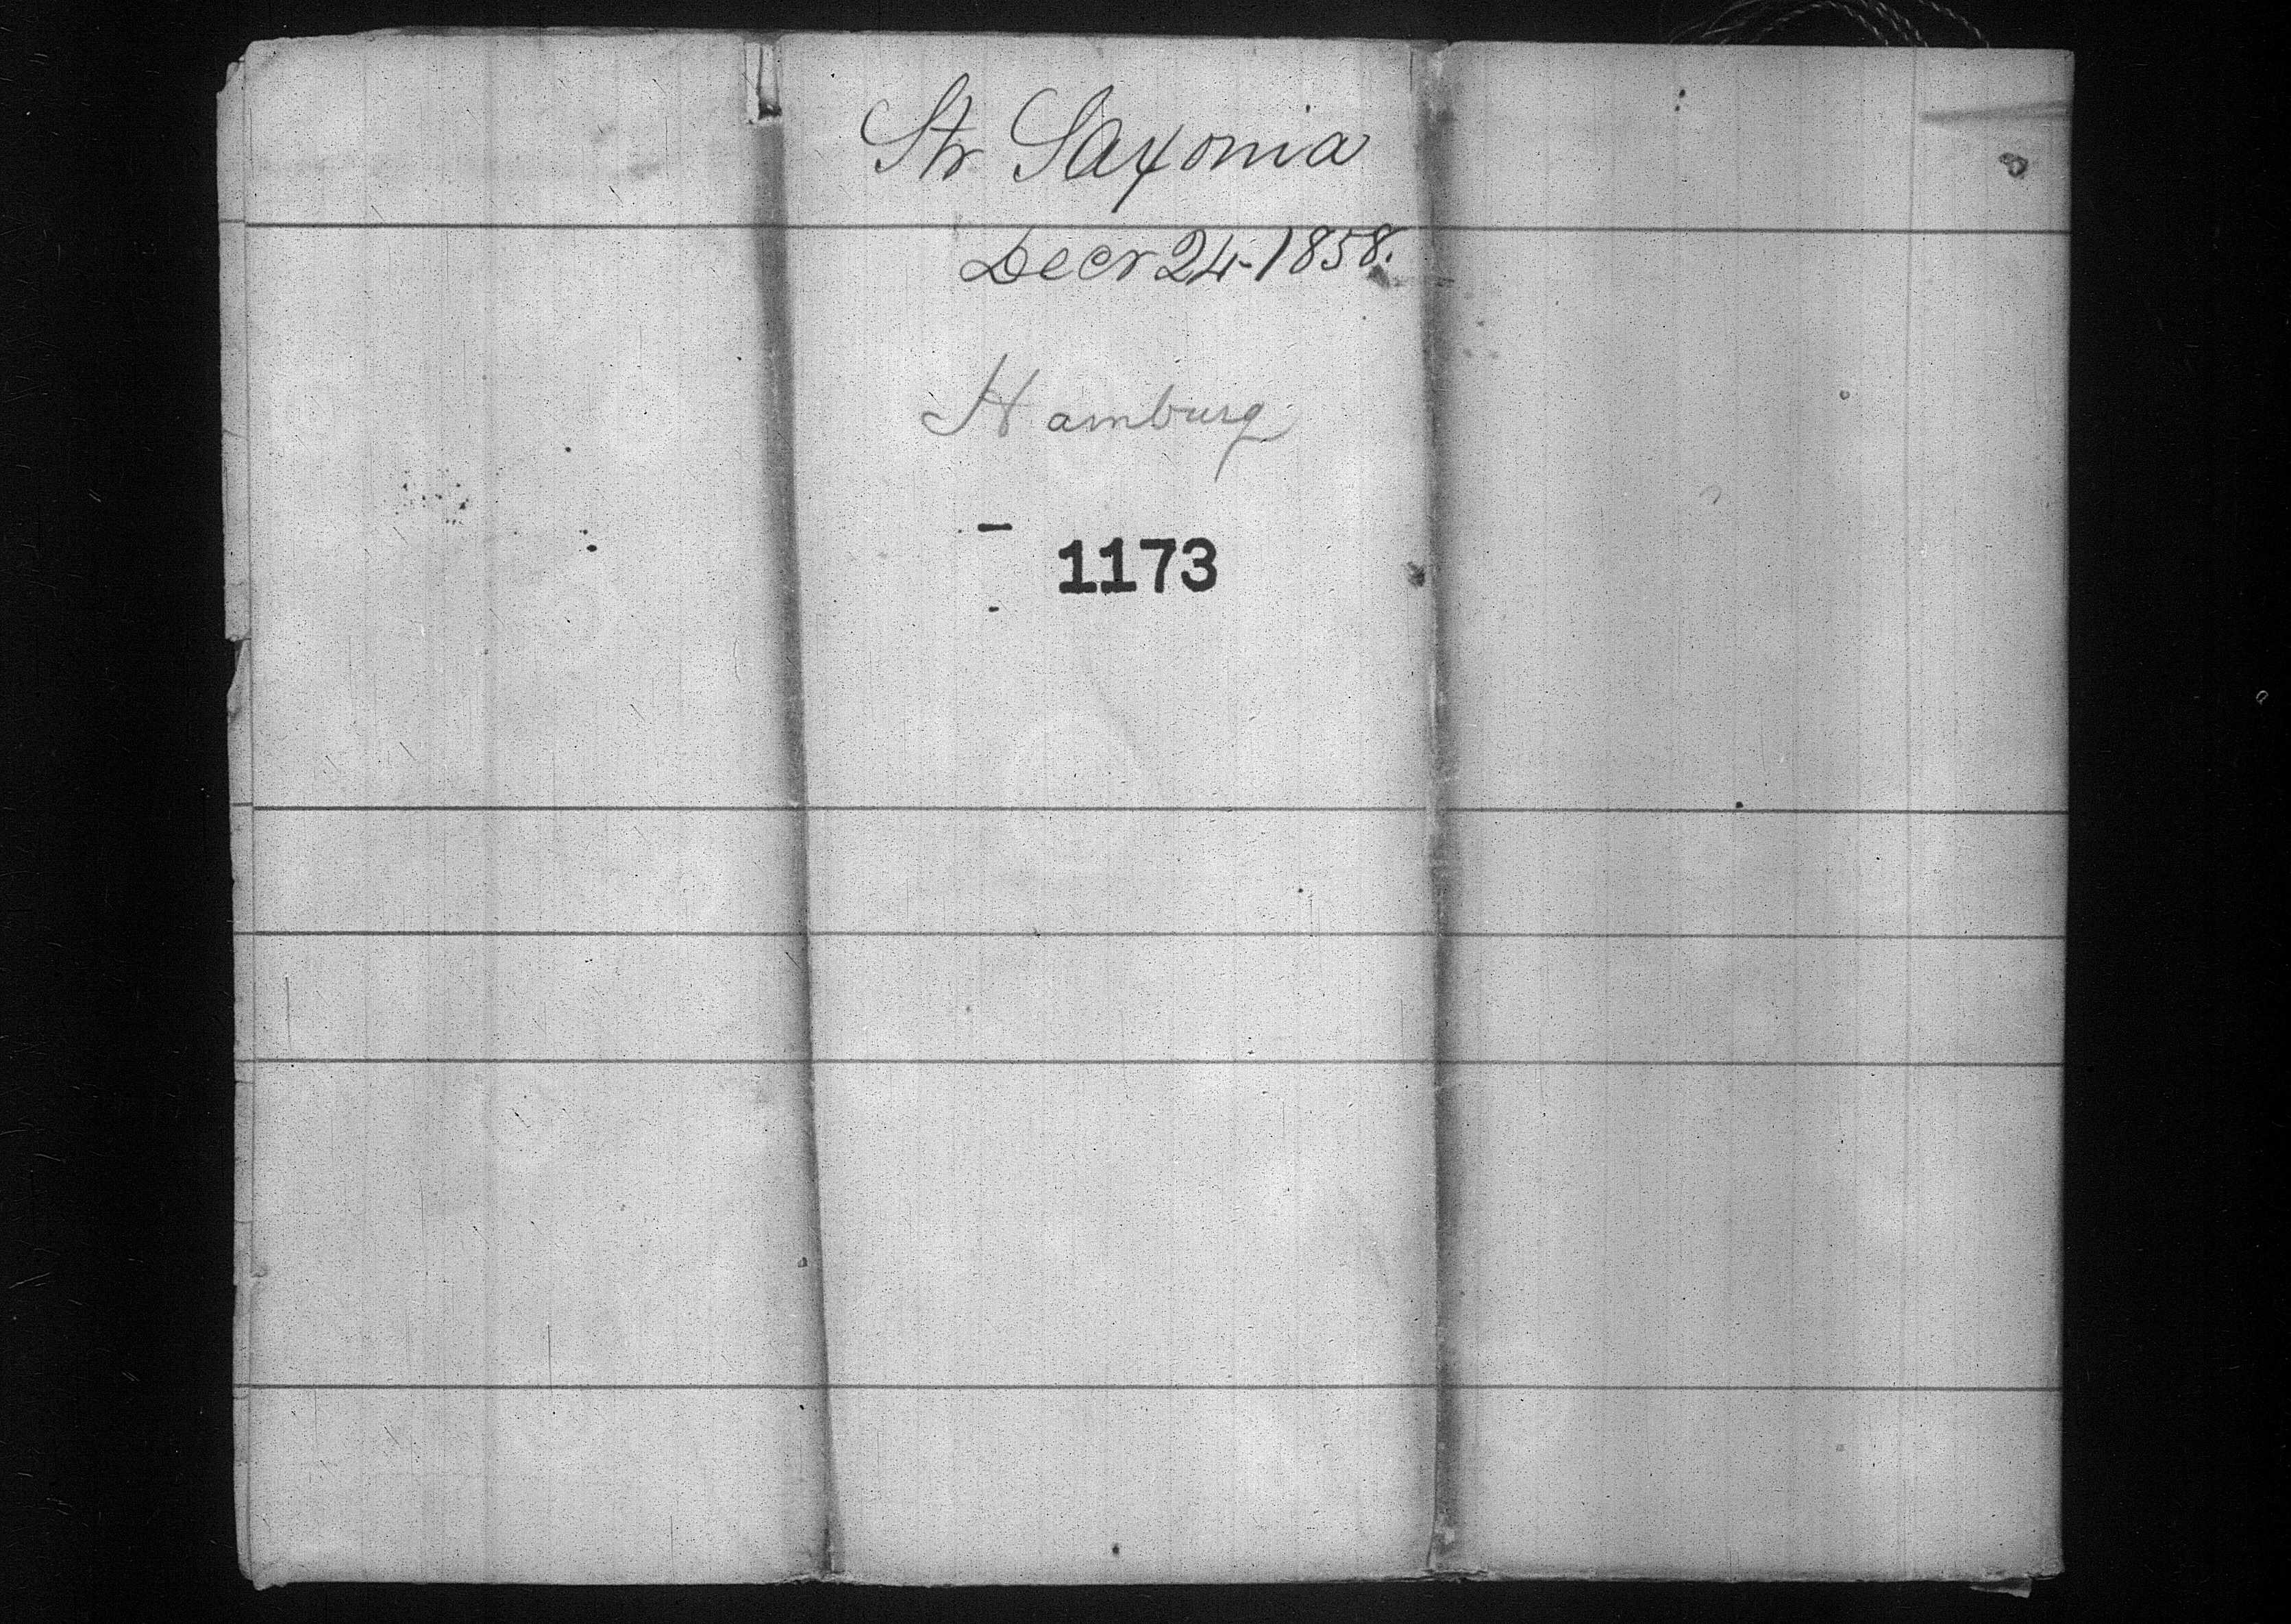 Str Saxonia
Decr 24-1858.
Hamburg
1173